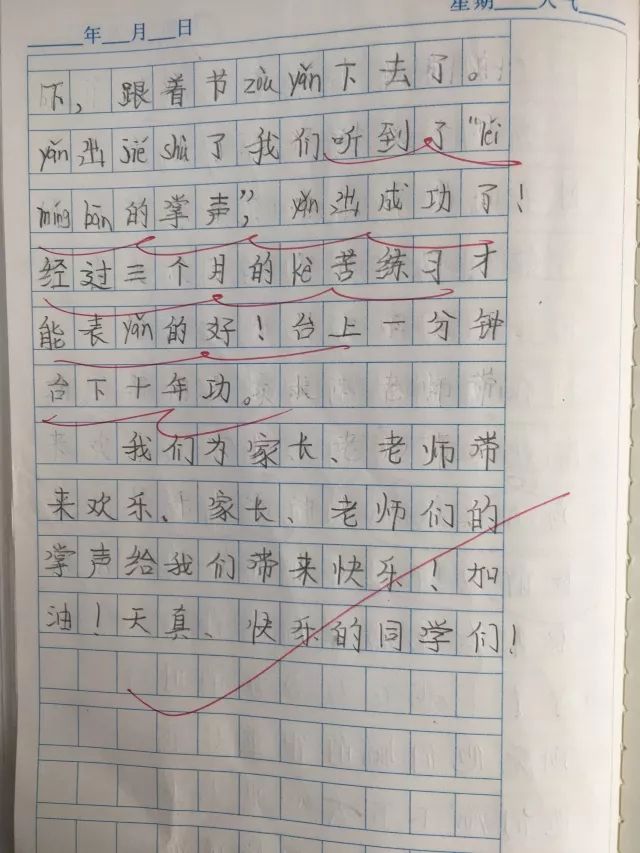 星期 天气
年 月 日
下，跟着节zòu yǎn下去了。
yǎn出jié shù了我们听到了“léi
míng bān的掌声”，yǎn出成功了！
经过三个月的kè苦练习才
能表yǎn的好！台上一分钟
台下十年功。
我们为家长、老师带
来欢乐、家长、老师们的
掌声给我们带来快乐！加
油！天真、快乐的同学们！